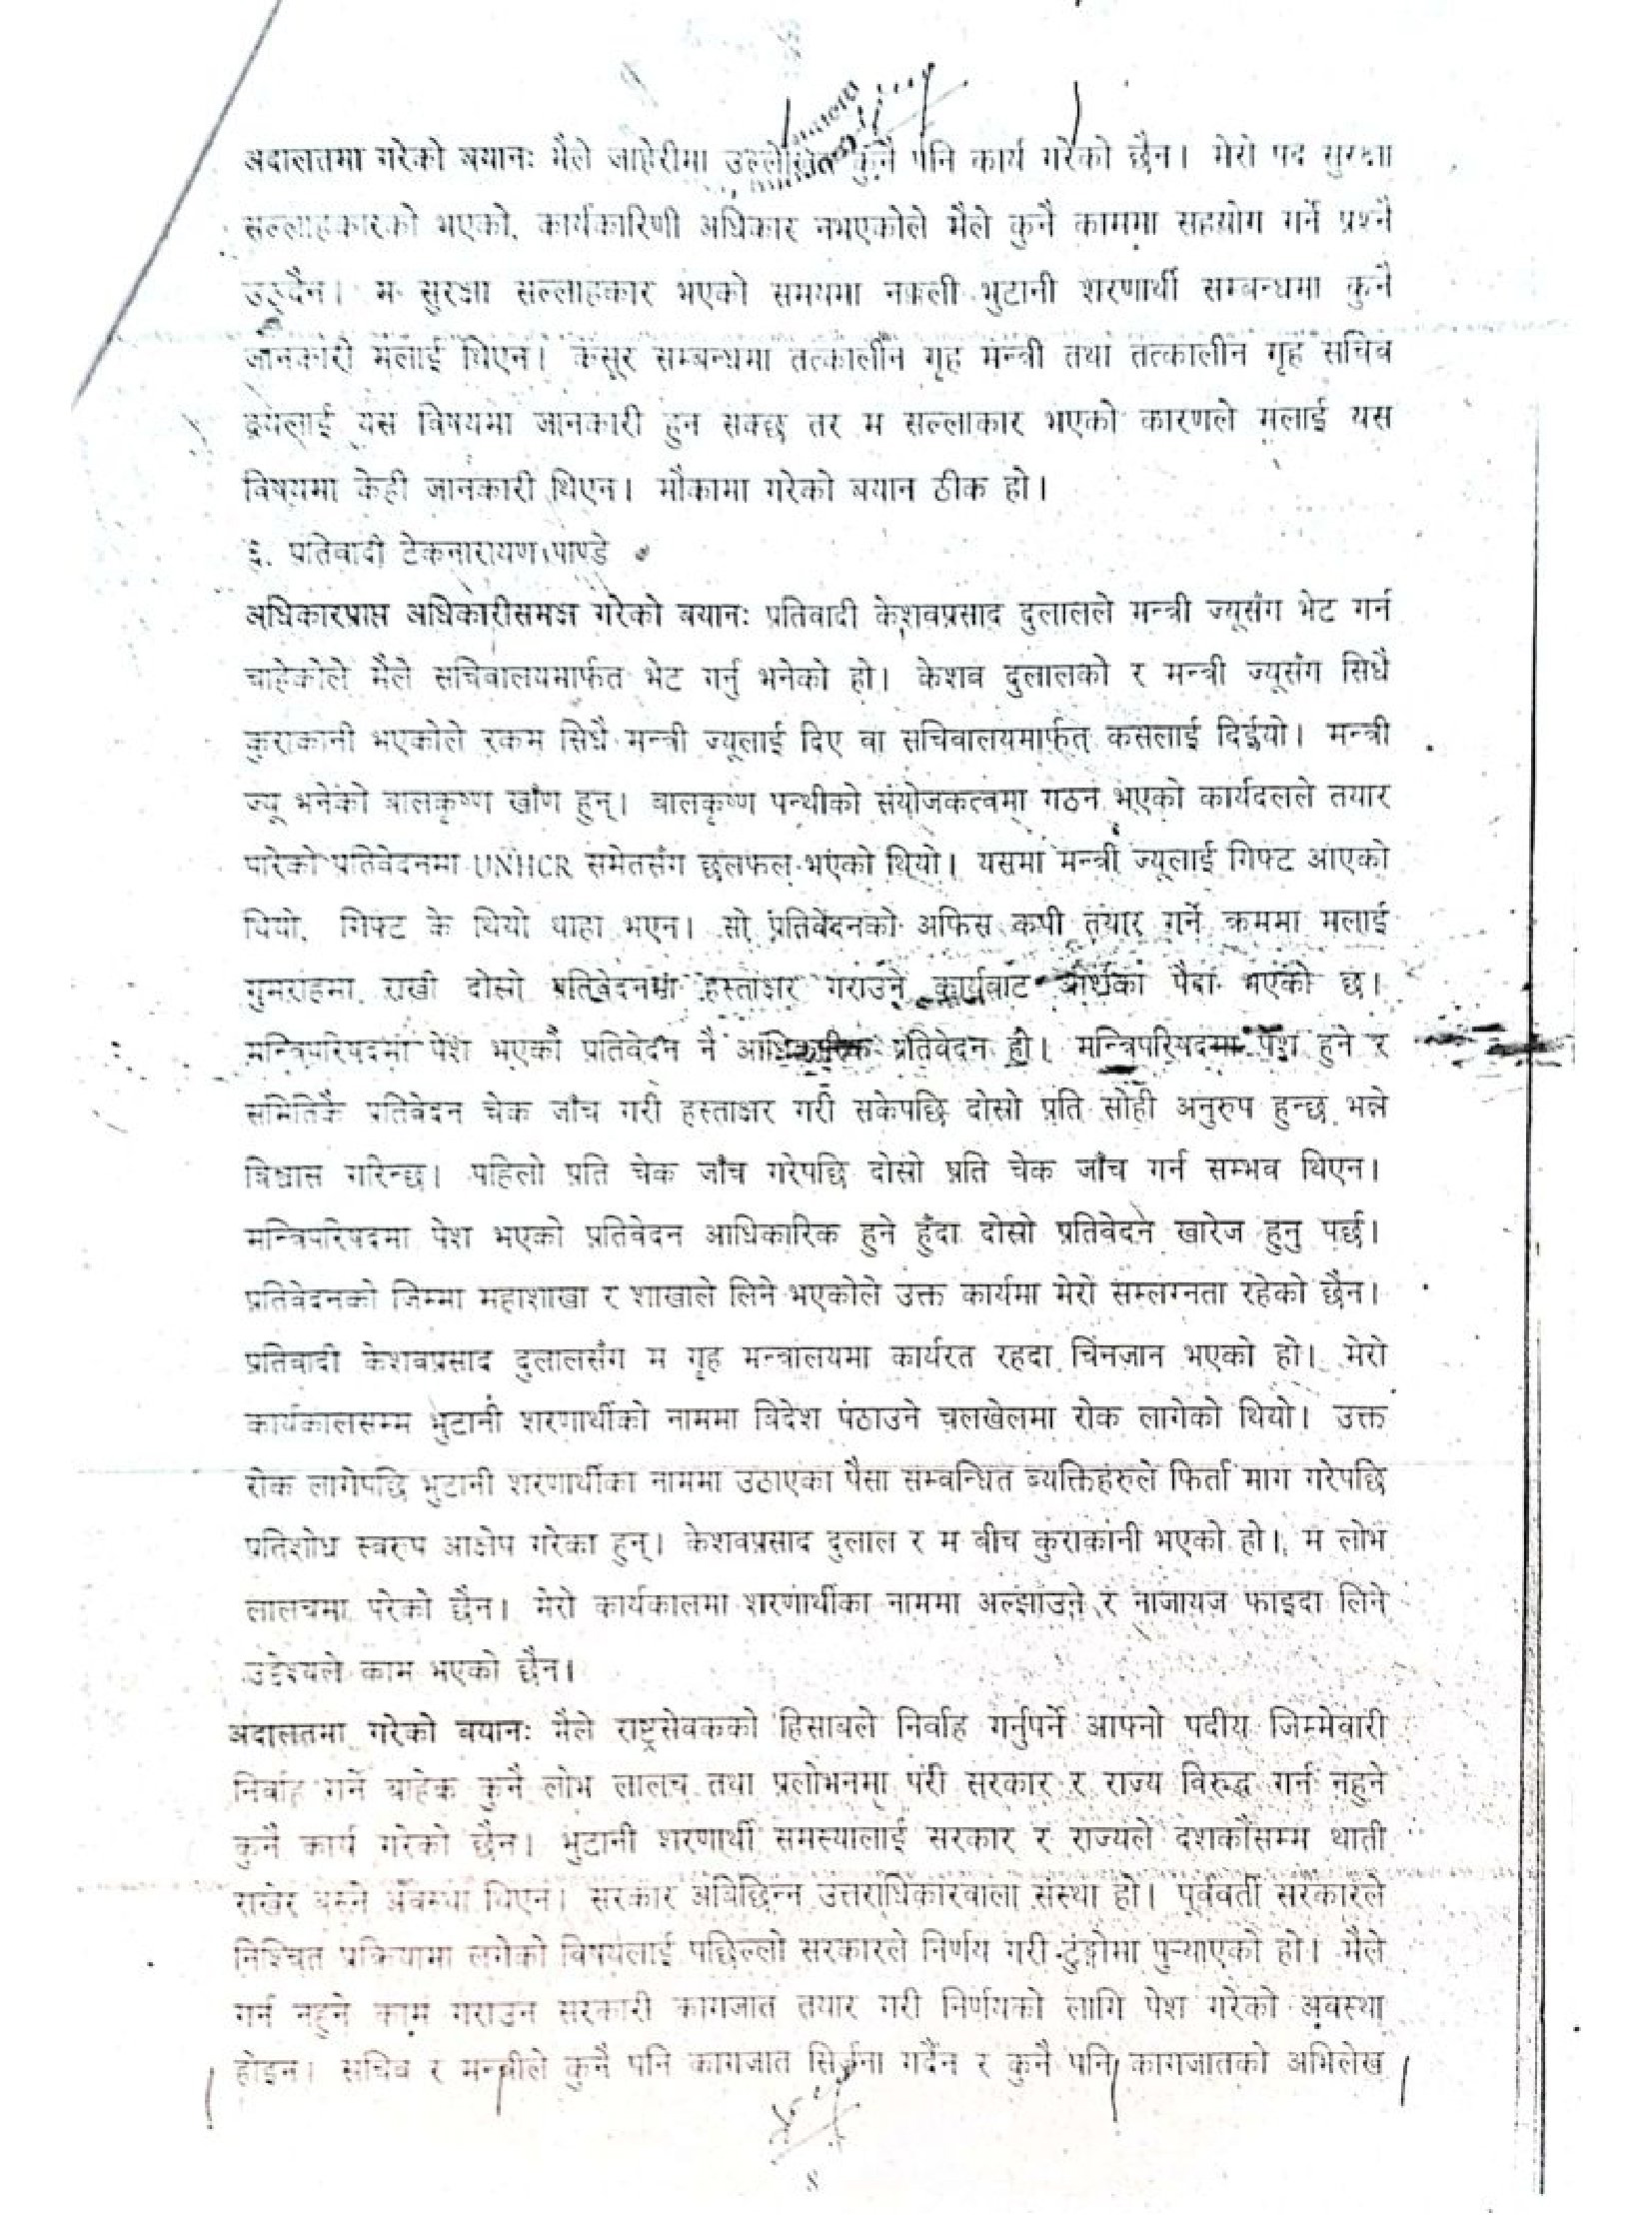 अदालतमा गरेको बयानः मैले जाहेरीमा उल्लेखित कुनै पनि कार्य गरेको छैन। मेरो पद सुरक्षा
सल्लाहकारको भएको, कार्यकारिणी अधिकार नभएकोले मैले कुनै काममा सहयोग गर्ने प्रश्नै
उठ्दैन। म सुरक्षा सल्लाहकार भएको समयमा नक्कली भुटानी शरणार्थी सम्बन्धमा कुनै
जानकारी मलाई थिएन। कसूर सम्बन्धमा तत्कालीन गृह मन्त्री तथा तत्कालीन गृह सचिव
द्वयलाई यस विषयमा जानकारी हुन सक्छ तर म सल्लाकार भएको कारणले मलाई यस
विषयमा केही जानकारी थिएन। मौकामा गरेको बयान ठीक हो।
६. प्रतिवादी टेकनारायण पाण्डे
अधिकारप्राप्त अधिकारीसमक्ष गरेको बयानः प्रतिवादी केशवप्रसाद दुलालले मन्त्री ज्यूसँग भेट गर्न
चाहेकोले मैले सचिवालयमार्फत भेट गर्नु भनेको हो। केशव दुलालको र मन्त्री ज्यूसँग सिधै
कुराकानी भएकोले रकम सिधै मन्त्री ज्यूलाई दिए वा सचिवालयमार्फत् कसलाई दिईयो। मन्त्री
ज्यू भनेको बालकृष्ण खाँण हुन्। बालकृष्ण पन्थीको संयोजकत्वमा गठन भएको कार्यदलले तयार
पारेको प्रतिवेदनमा UNHCR समेतसँग छलफल भएको थियो। यसमा मन्त्री ज्यूलाई गिफ्ट आएको
थियो, गिफ्ट के थियो थाहा भएन। सो प्रतिवेदनको अफिस कपी तयार गर्ने क्रममा मलाई
गुमराहमा राखी दोस्रो प्रतिवेदनमा हस्ताक्षर गराउने कार्यबाट आशंका पैदा भएको छ।
मन्त्रिपरिषदमा पेश भएको प्रतिवेदन नै आधिकारिक प्रतिवेदन हो। मन्त्रिपरिषदमा पेश हुने र
समितिकै प्रतिवेदन चेक जाँच गरी हस्ताक्षर गरी सकेपछि दोस्रो प्रति सोही अनुरुप हुन्छ भन्ने
विश्वास गरिन्छ। पहिलो प्रति चेक जाँच गरेपछि दोस्रो प्रति चेक जाँच गर्न सम्भव थिएन।
मन्त्रिपरिषदमा पेश भएको प्रतिवेदन आधिकारिक हुने हुँदा दोस्रो प्रतिवेदन खारेज हुनु पर्छ।
प्रतिवेदनको जिम्मा महाशाखा र शाखाले लिने भएकोले उक्त कार्यमा मेरो सम्लग्नता रहेको छैन।
प्रतिवादी केशवप्रसाद दुलालसँग म गृह मन्त्रालयमा कार्यरत रहदा चिनजान भएको हो। मेरो
कार्यकालसम्म भुटानी शरणार्थीको नाममा विदेश पठाउने चलखेलमा रोक लागेको थियो। उक्त
रोक लागेपछि भुटानी शरणार्थीका नाममा उठाएका पैसा सम्बन्धित व्यक्तिहरुले फिर्ता माग गरेपछि
प्रतिशोध स्वरुप आक्षेप गरेका हुन्। केशवप्रसाद दुलाल र म बीच कुराकानी भएको हो। म लोभ
लालचमा परेको छैन। मेरो कार्यकालमा शरणार्थीका नाममा अल्झाउने र नाजायज फाइदा लिने
उद्देश्यले काम भएको छैन।
अदालतमा गरेको बयानः मैले राष्ट्रसेवकको हिसाबले निर्वाह गर्नुपर्ने आफ्नो पदीय जिम्मेवारी
निर्वाह गर्ने बाहेक कुनै लोभ लालच तथा प्रलोभनमा परी सरकार र राज्य विरुद्ध गर्न नहुने
कुनै कार्य गरेको छैन। भुटानी शरणार्थी समस्यालाई सरकार र राज्यले दशकौंसम्म थाती
राखेर बस्ने अवस्था थिएन। सरकार अविछिन्न उत्तराधिकारवाला संस्था हो। पूर्ववर्ती सरकारले
निश्चित प्रक्रियामा लगेको विषयलाई पछिल्लो सरकारले निर्णय गरी टुंगोमा पुर्‍याएको हो। मैले
गर्न नहुने काम गराउन सरकारी कागजात तयार गरी निर्णयको लागि पेश गरेको अवस्था
होइन। सचिव र मन्त्रीले कुनै पनि कागजात सिर्जना गर्दैन र कुनै पनि कागजातको अभिलेख